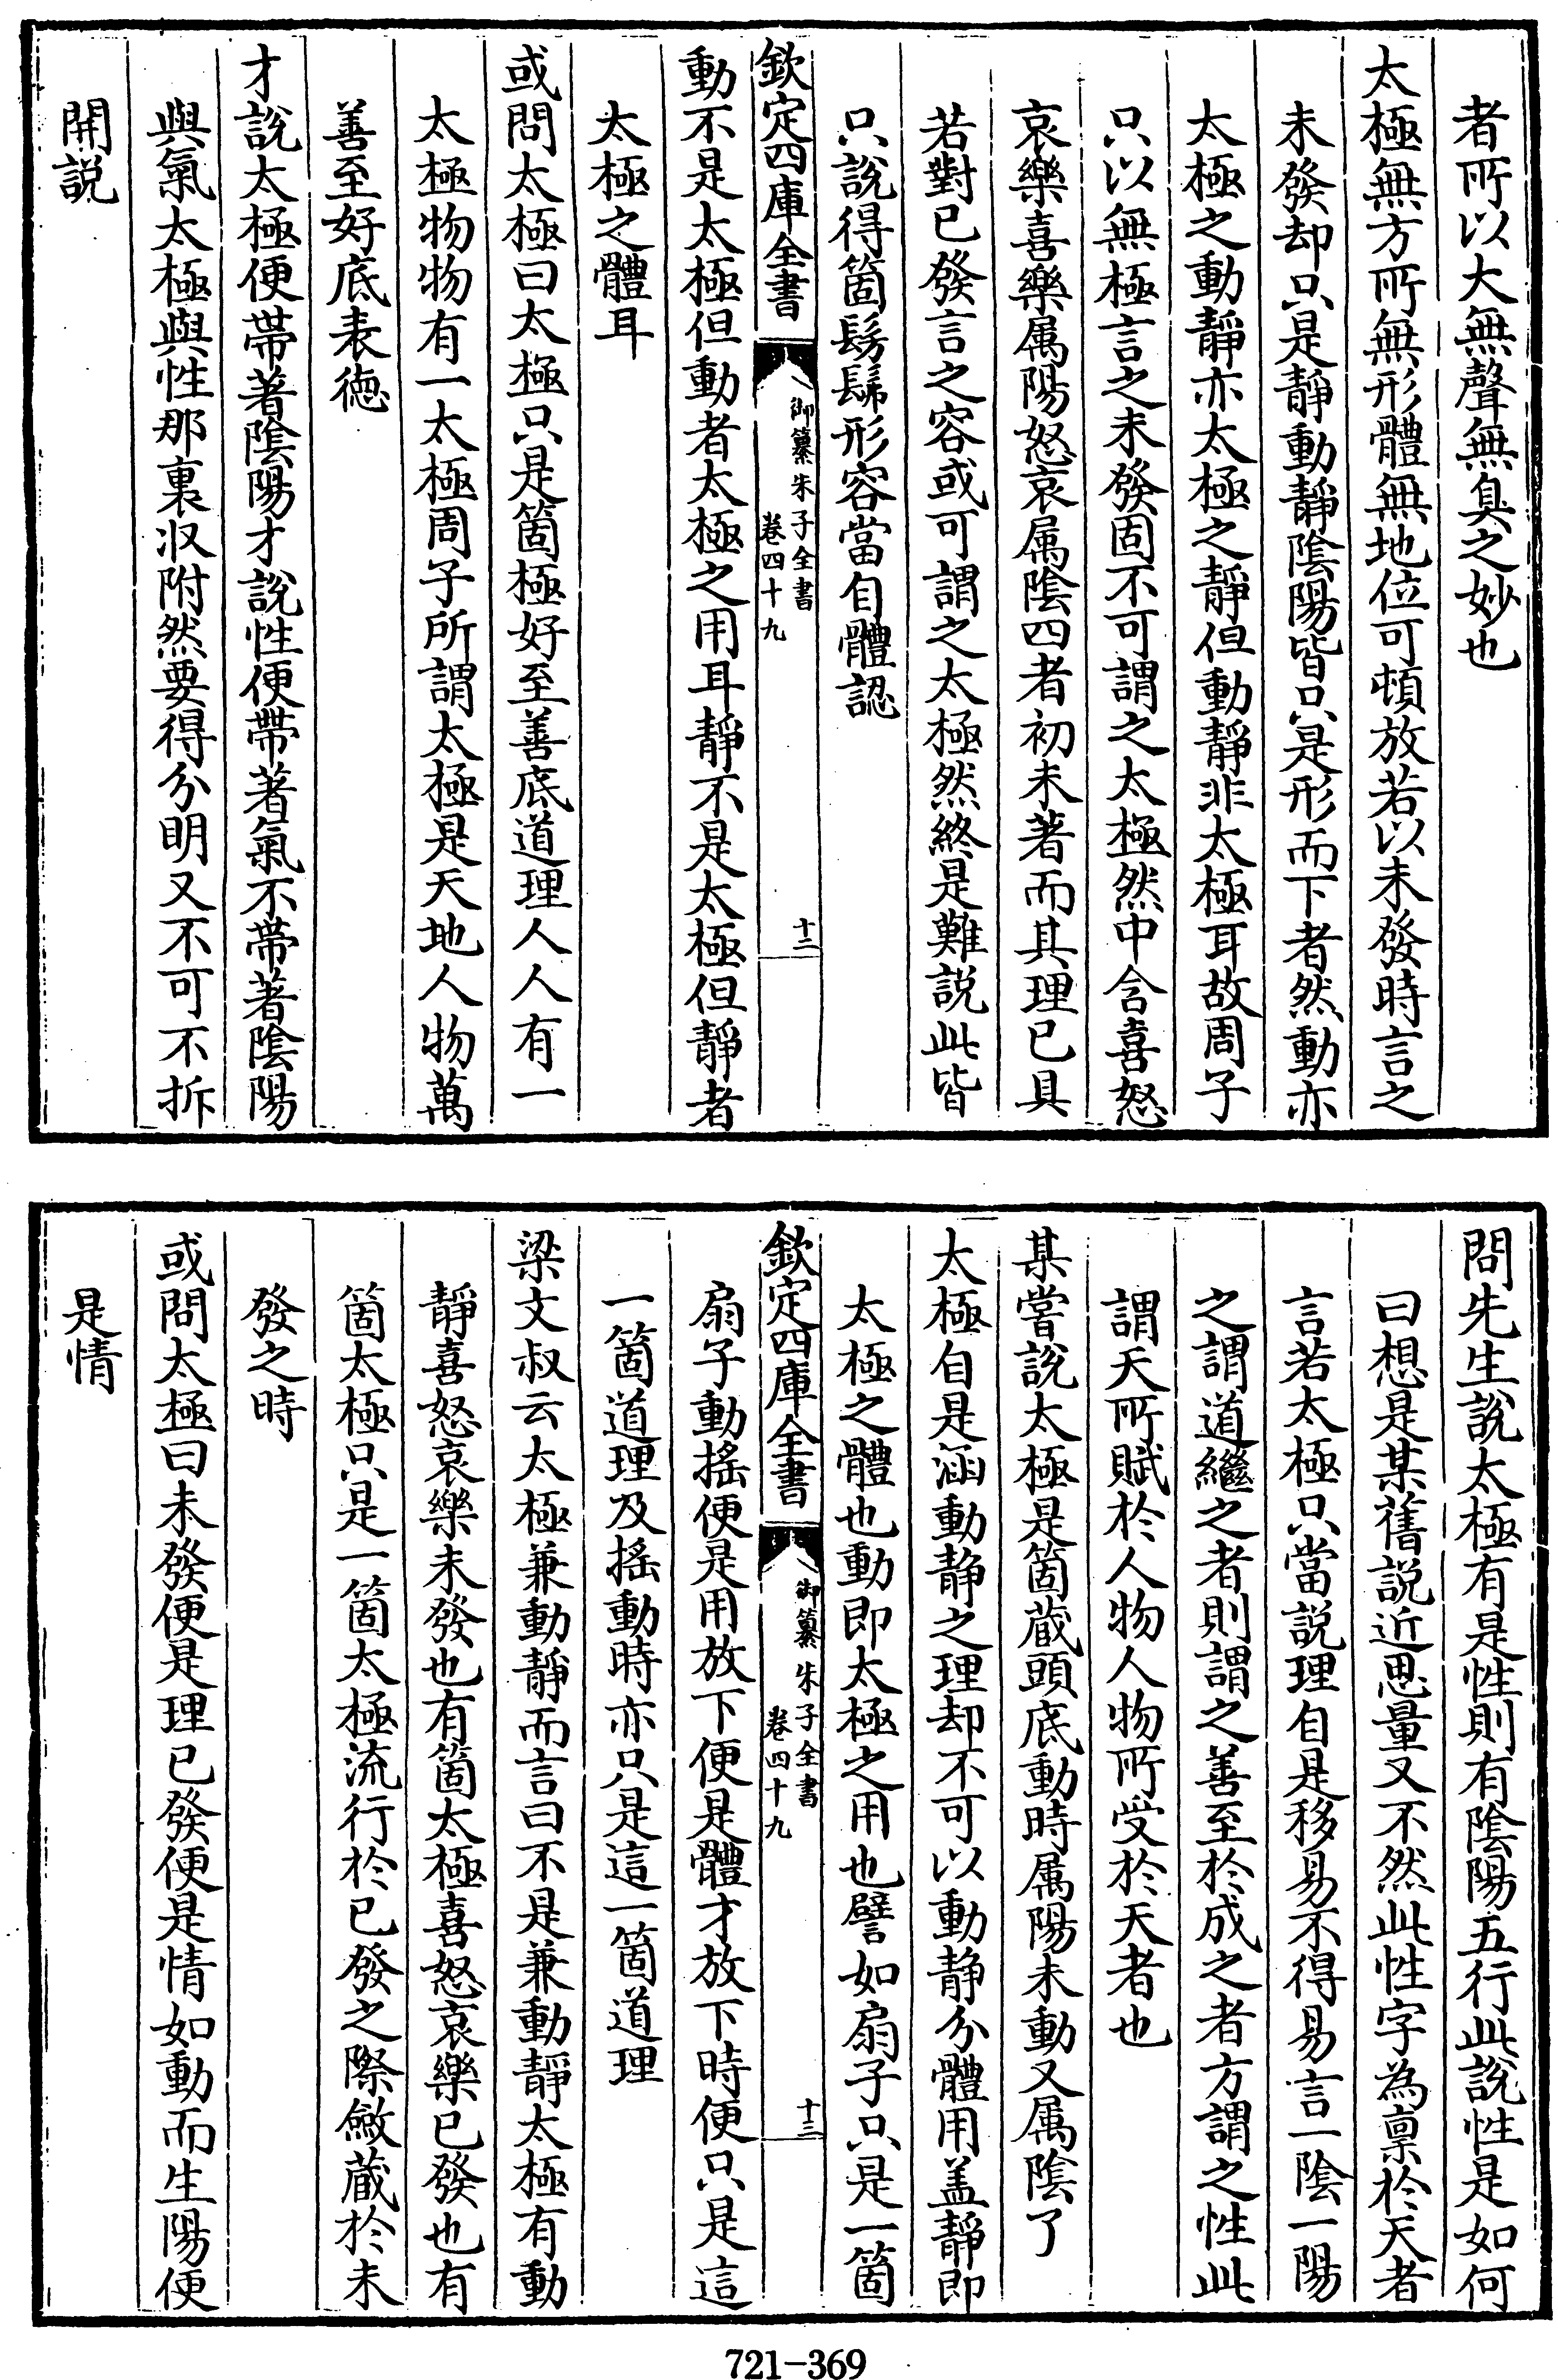 者所以大無聲無臭之妙也
太極無方所無形體無地位可頓放若以未發時言之
未發却只是靜動靜陰陽皆只是形而下者然動亦
太極之動靜亦太極之靜但動靜非太極耳故周子
只以無極言之未發固不可謂之太極然中含喜怒
哀樂喜樂属陽怒哀属陰四者初未著而其理已具
若對已發言之容或可謂之太極然終是難説此皆
只說得箇髣髴形容當自體認
欽定四庫全書
御纂朱子全書
卷四十九
十二
動不是太極但動者太極之用耳靜不是太極但靜者
太極之體耳
或問太極曰太極只是箇極好至善底道理人人有一
太極物物有一太極周子所謂太極是天地人物萬
善至好底表徳
才說太極便帶著陰陽才說性便帶著氣不帶著陰陽
與氣太極與性那裏収附然要得分明又不可不拆
開説
問先生說太極有是性則有陰陽五行此說性是如何
曰想是某舊説近思量又不然此性字為稟於天者
言若太極只當説理自是移易不得易言一陰一陽
之謂道繼之者則謂之善至於成之者方謂之性此
謂天所賦於人物人物所受於天者也
某嘗說太極是箇蔵頭底動時属陽未動又属陰了
太極自是涵動静之理却不可以動静分體用盖靜即
太極之體也動即太極之用也譬如扇子只是一箇
欽定四庫全書
御纂朱子全書
卷四十九
十三
扇子動搖便是用放下便是體才放下時便只是這
一箇道理及搖動時亦只是這一箇道理
梁文叔云太極兼動靜而言曰不是兼動靜太極有動
靜喜怒哀樂未發也有箇太極喜怒哀樂已發也有
箇太極只是一箇太極流行於已發之際斂蔵於未
發之時
或問太極曰未發便是理已發便是情如動而生陽便
是情
721-369